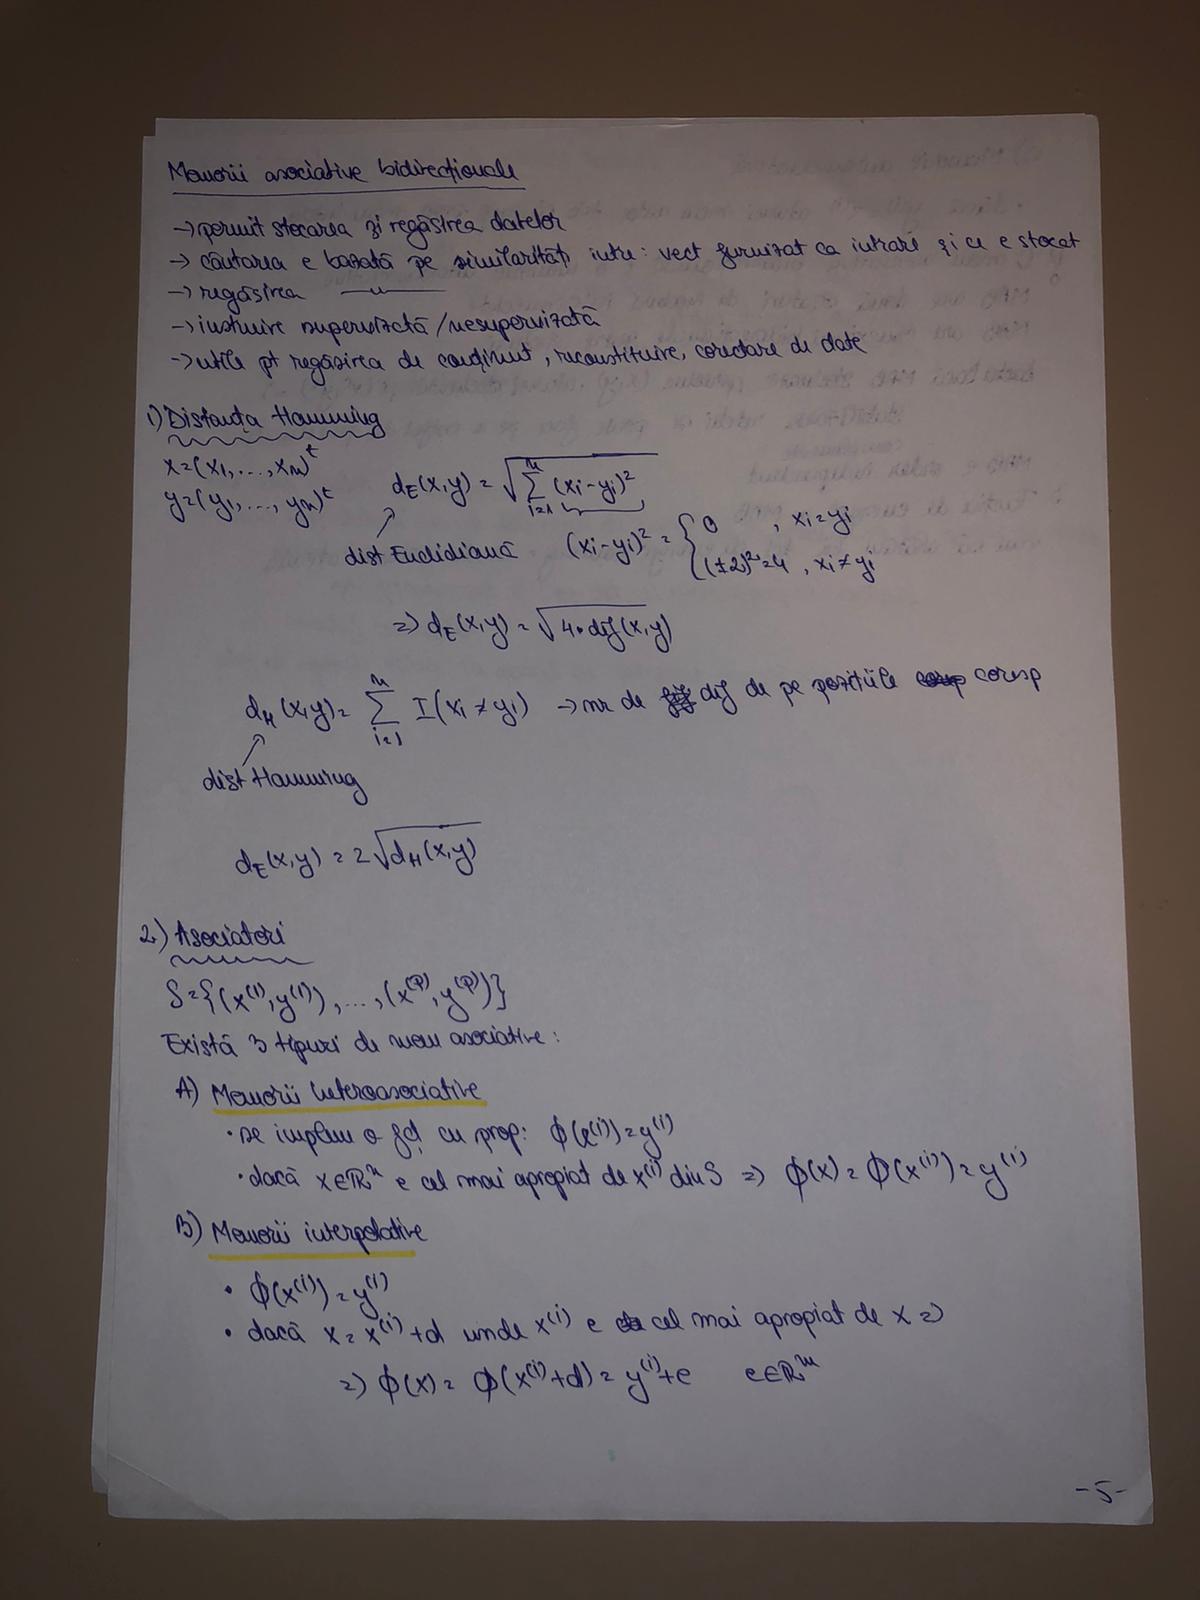 Memorii asociative bidirecționale
→ permit stocarea și regăsirea datelor
→ căutarea e bazată pe similarități între: vect furnizat ca intrare și ce e stocat
→ regăsirea —„—
→ instruire supervizată/nesupervizată
→ utile pt regăsirea de conținut, reconstituire, corectare de date
1) Distanța Hamming
x=(x1,...,xn)^t
y=(y1,...,yn)^t
dE(x,y) = √(∑_{i=1}^{n} (xi-yi)²)
dist Euclidiană
(xi-yi)² = { 0 , xi=yi
(±2)²=4 , xi≠yi
=> dE(x,y) = √(4·dif(x,y))
dH(x,y) = ∑_{i=1}^{n} I(xi≠yi) → nr de dif de pe pozițiile coresp
dist Hamming
dE(x,y) = 2√(dH(x,y))
2) Asociatori
S={(x^(1),y^(1)),...,(x^(P),y^(P))}
Există 3 tipuri de mem asociative:
A) Memorii heteroasociative
• se implem o fcț cu prop: ϕ(x^(i))=y^(i)
• dacă x∈ℝ^n e cel mai apropiat de x^(i) din S => ϕ(x)=ϕ(x^(i))=y^(i)
B) Memorii interpolative
• ϕ(x^(i))=y^(i)
• dacă x=x^(i)+d unde x^(i) e cel mai apropiat de x =>
=> ϕ(x)=ϕ(x^(i)+d)=y^(i)+e e∈ℝ^m
-5-